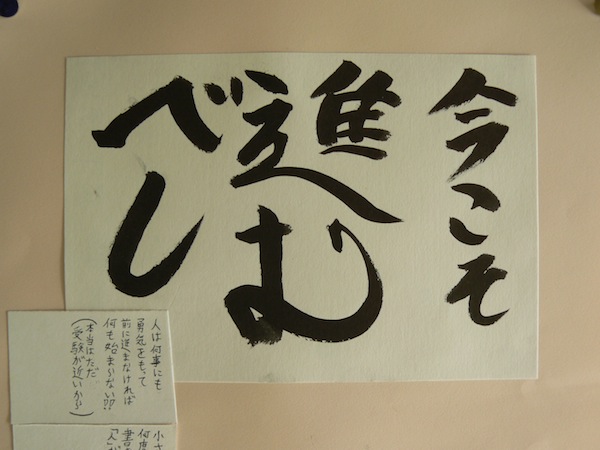 今こそ
進む
べし
人は何事にも
勇気をもって
前に進まなければ
何も始まらない!!
(本当はただ
受験が近いから)
小さ
何度
書
「人」